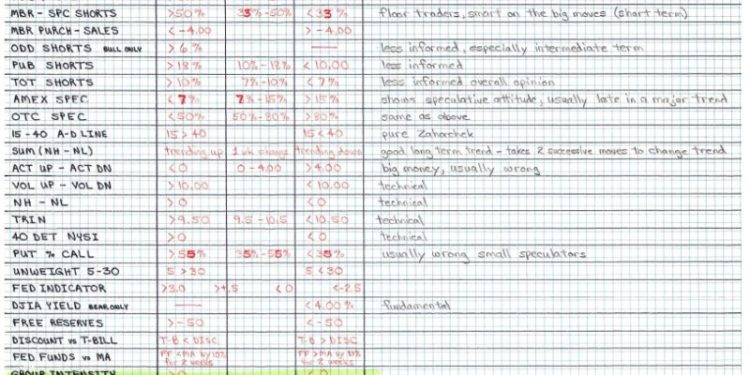 MBR - SPC SHORTS >50% 35%-50% <35% floor traders, smart on the big moves (short term)
MBR PURCH - SALES <-4.00 >-4.00
ODD SHORTS BULL ONLY >6% — less informed, especially intermediate term
PUB SHORTS >18% 10%-18% <10.00 less informed
TOT SHORTS >10% 7%-10% <7% less informed overall opinion
AMEX SPEC <7% 7%-15% >15% shows speculative attitude, usually late in a major trend
OTC SPEC <50% 50%-80% >80% same as above
15 - 40 A-D LINE 15 > 40 15 < 40 pure Zahorchek
SUM (NH - NL) trending up 1 wk change trending down good long term trend - takes 2 successive moves to change trend
ACT UP - ACT DN <0 0-4.00 >4.00 big money, usually wrong
VOL UP - VOL DN >10.00 <10.00 technical
NH - NL >0 <0 technical
TRIN >9.50 9.5-10.5 <10.50 technical
40 DET NYSI >0 <0 technical
PUT % CALL >55% 35%-55% <35% usually wrong small speculators
UNWEIGHT 5-30 5 > 30 5 < 30
FED INDICATOR >3.0 >+.5 <0 <-2.5
DJIA YIELD BEAR ONLY — <4.00% fundamental
FREE RESERVES >-50 <-50
DISCOUNT vs T-BILL T-B < DISC T-B > DISC
FED FUNDS vs MA FF < MA by 10% for 2 weeks FF > MA by 10% for 2 weeks
GROUP INTENSITY >0 <0